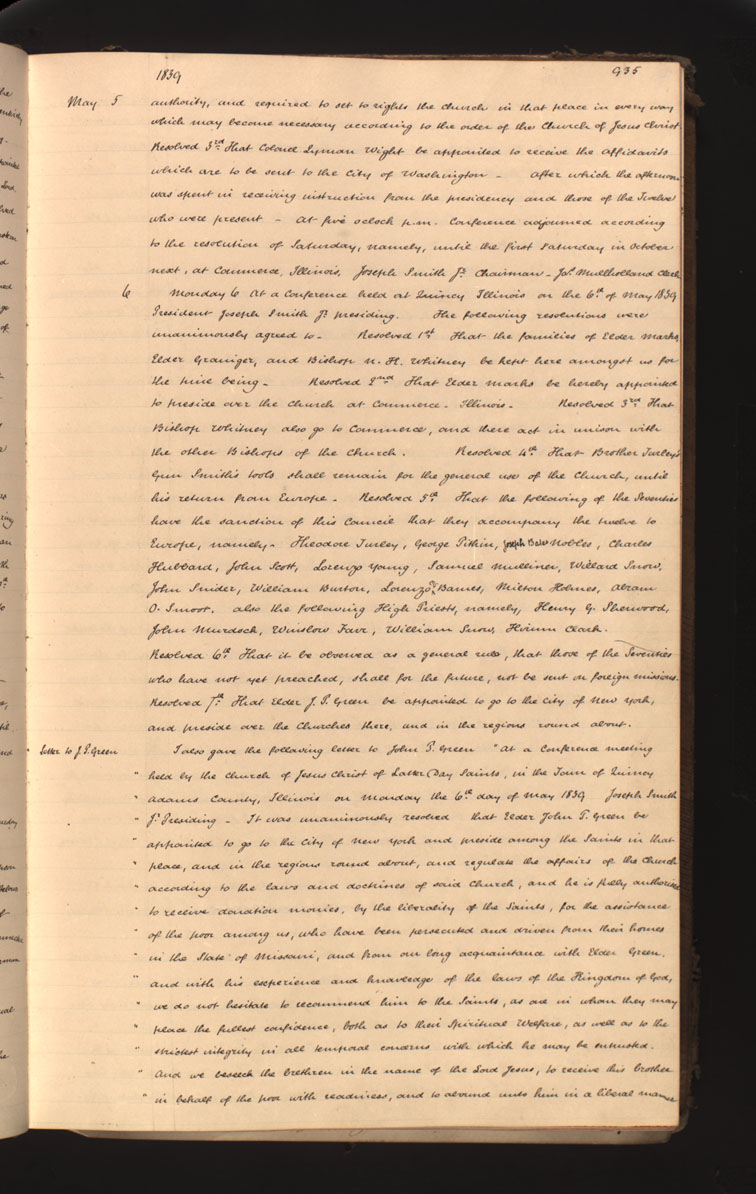 1839
935
May 5 authority, and required to set to rights the church in that place in every way
which may become necessary according to the order of the Church of Jesus Christ
Resolved 3rd That Colonel Lyman Wight be appointed to receive the affidavits
which are to be sent to the City of Washington - After which the afternoon
was spent in receiving instruction from the presidency and those of the Twelve
who were present - At five oclock p.m. Conference adjourned according
to the resolution of Saturday, namely, until the first Saturday in October
next, at Commerce, Illinois. Joseph Smith Jr Chairman - Jas. Mullholland Clerk
6 Monday 6 At a Conference held at Quincy Illinois on the 6th of May 1839
President Joseph Smith Jr presiding. The following resolutions were
unanimously agreed to - Resolved 1st That the families of Elder Marks,
Elder Grainger, and Bishop N. K. Whitney be kept here amongst us for
the time being - Resolved 2nd That Elder Marks be hereby appointed
to preside over the church at Commerce - Illinois - Resolved 3rd That
Bishop Whitney also go to Commerce, and there act in unison with
the other Bishops of the Church. Resolved 4th That Brother Turley's
Gun Smith's tools shall remain for the general use of the Church, until
his return from Europe - Resolved 5th That the following of the Seventies
have the sanction of this Council that they accompany the twelve to
Europe, namely - Theodore Turley, George Pitkin, Joseph Bates Nobles, Charles
Hubbard, John Scott, Lorenzo Young, Samuel Mulliner, Willard Snow,
John Snider, William Burton, Lorenzo D. Barnes, Milton Holmes, Abram
O. Smoot, also the following High Priests, namely, Henry G. Sherwood,
John Murdock, Winslow Farr, William Snow, Hirum Clark.
Resolved 6th That it be observed as a general rule, that those of the Seventies
who have not yet preached, shall for the future, not be sent on foreign missions.
Resolved 7th That Elder J. P. Green be appointed to go to the City of New York,
and preside over the Churches there, and in the regions round about.
Letter to J. P. Green I also gave the following letter to John P. Green "At a Conference meeting
" held by the Church of Jesus Christ of Latter Day Saints, in the Town of Quincy
" Adams County, Illinois on Monday the 6th day of May 1839 Joseph Smith
" Jr Presiding - It was unanimously resolved that Elder John P. Green be
" appointed to go to the City of New York and preside among the Saints in that
" place, and in the regions round about, and regulate the affairs of the Church
" according to the laws and doctrines of said Church, and he is fully authorized
" to receive donation monies, by the liberality of the Saints, for the assistance
" of the poor among us, who have been persecuted and driven from their homes
" in the State of Missouri, and from our long acquaintance with Elder Green,
" and with his experience and knowledge of the laws of the Kingdom of God,
" we do not hesitate to recommend him to the Saints, as one in whom they may
" place the fullest confidence, both as to their Spiritual Welfare, as well as to the
" strictest integrity in all temporal concerns with which he may be entrusted.
" And we beseech the brethren in the name of the Lord Jesus, to receive this brother
" in behalf of the poor with readiness, and to abound unto him in a liberal manner